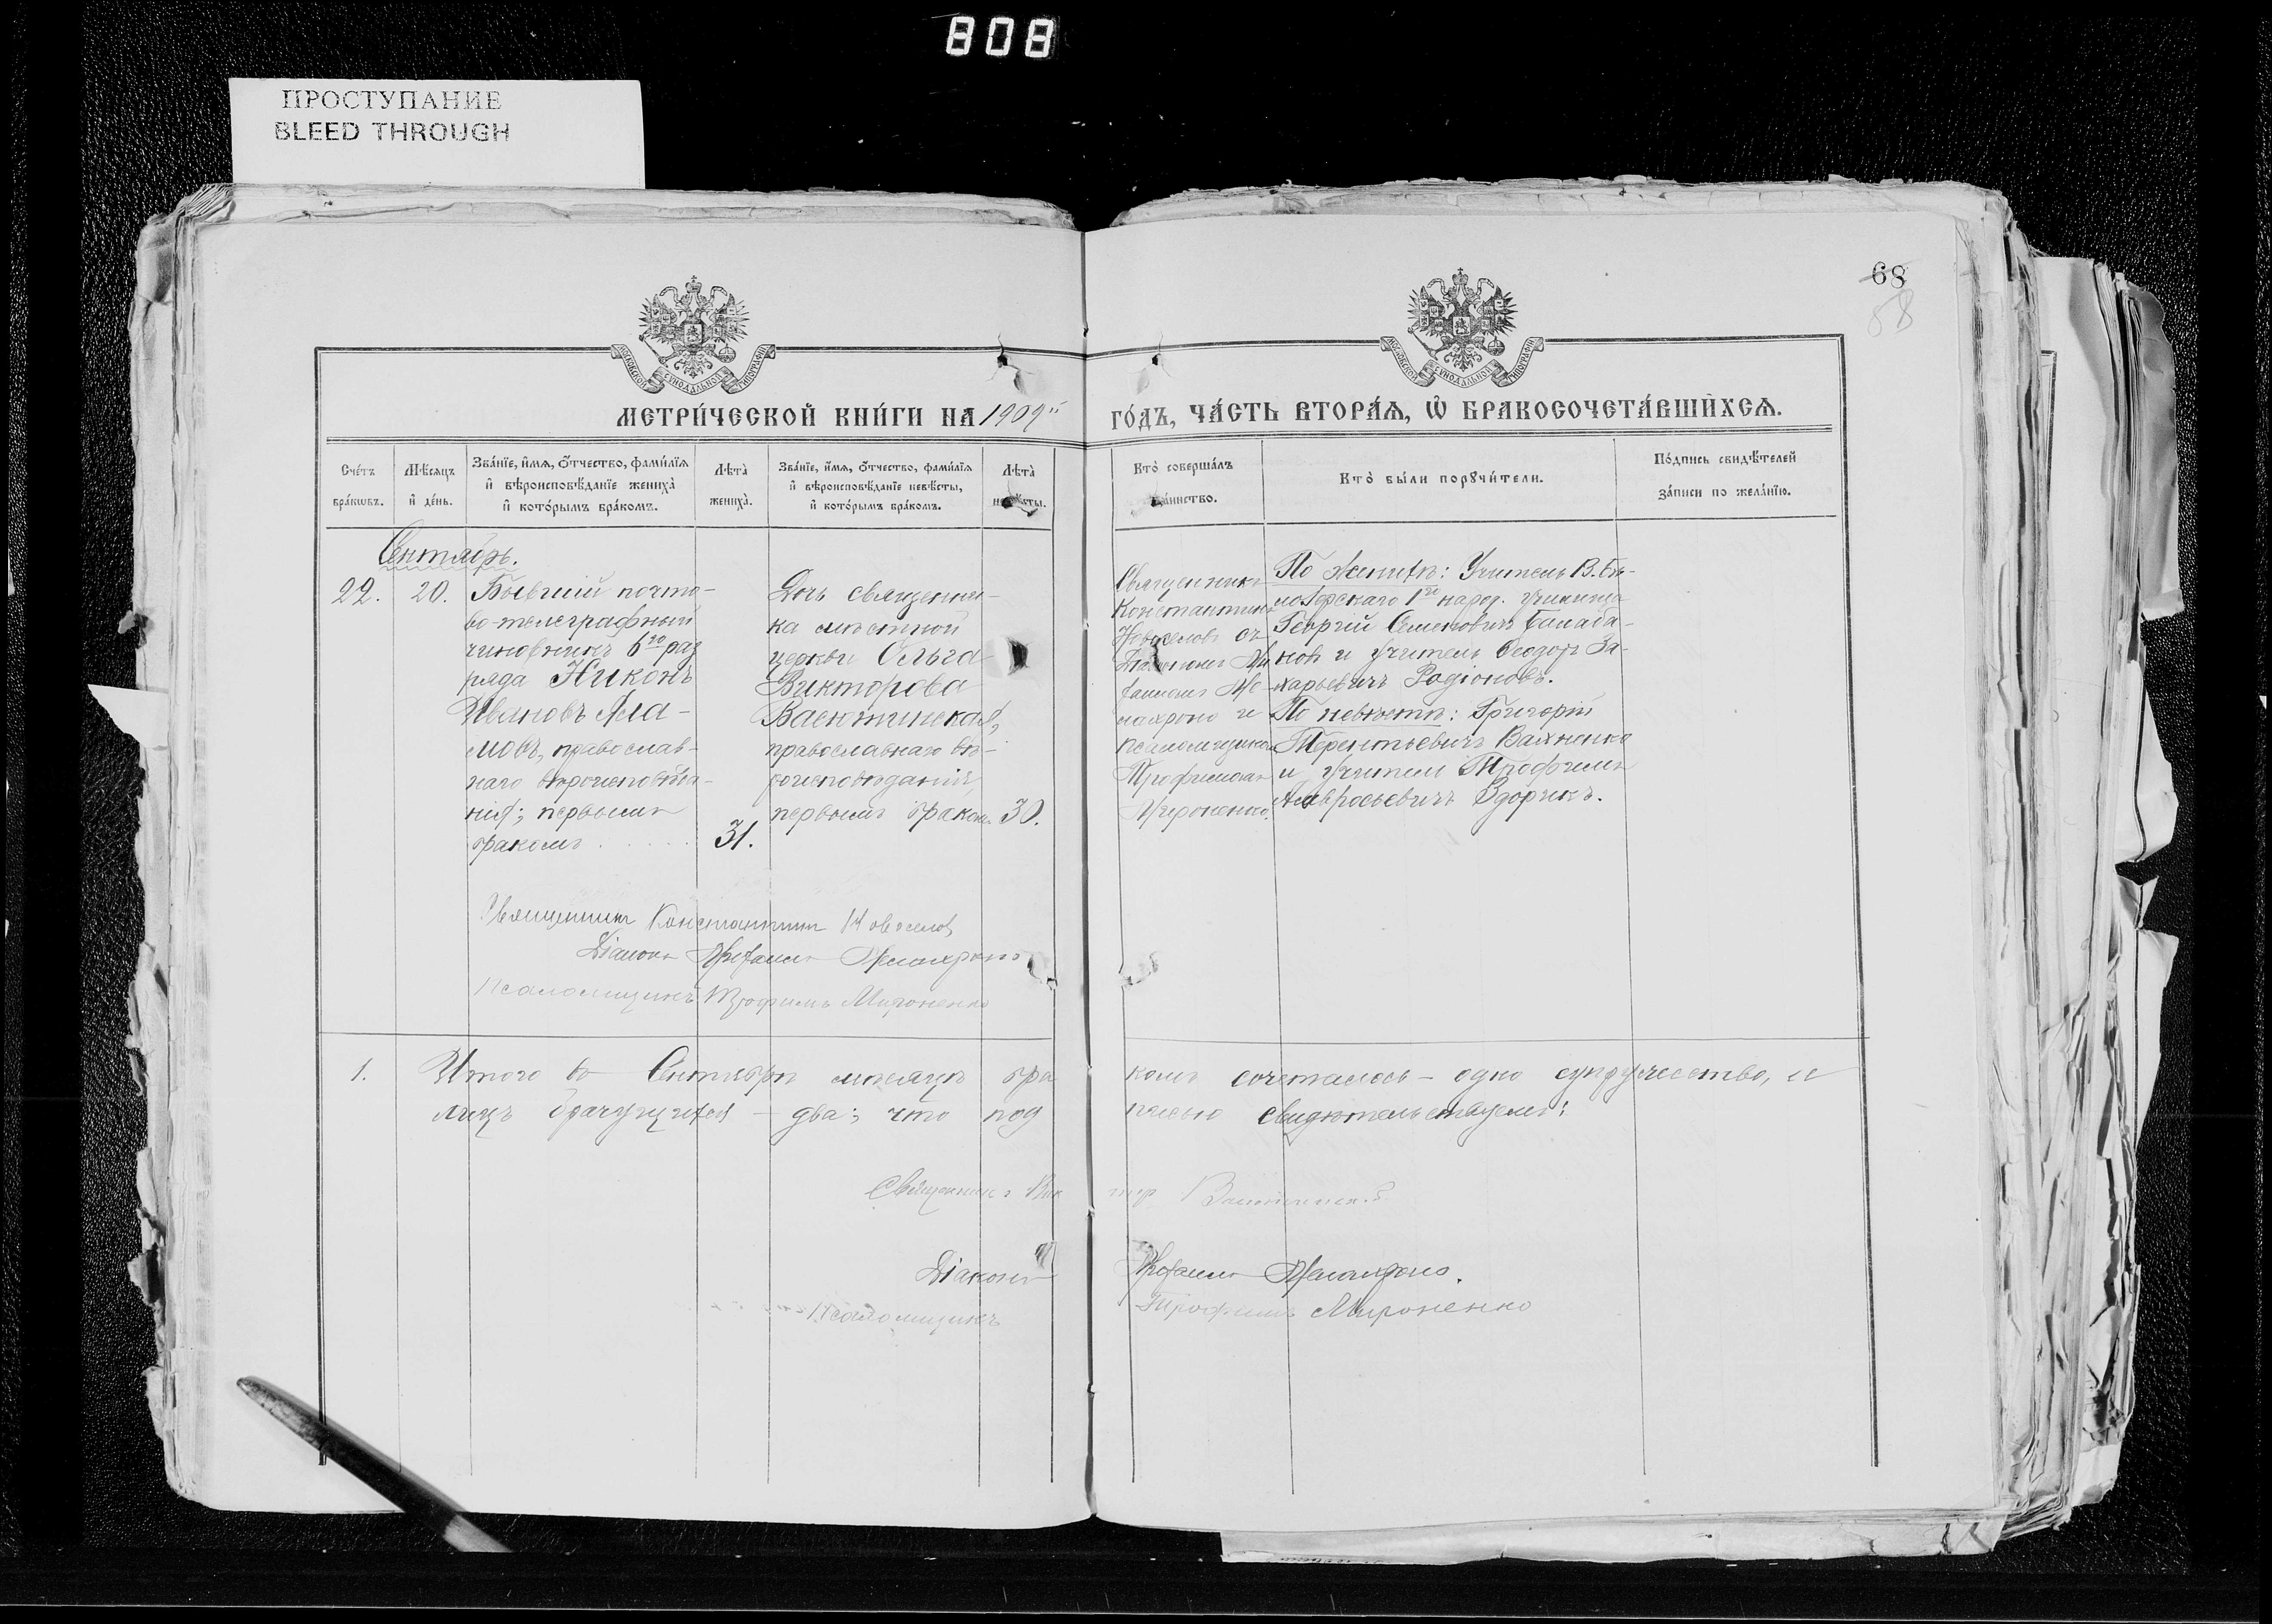 808
ПРОСТУПАНИЕ
BLEED THROUGH
68
58
МОСКОВСКОЙ СѴНОДАЛЬНОЙ ТИПОГРАФІИ
МОСКОВСКОЙ СѴНОДАЛЬНОЙ ТИПОГРАФІИ
МЕТРИ́ЧЕСКОЙ КНИ́ГИ НА 1909й ГО́ДЪ, ЧА́СТЬ ВТОРА́Я, Ѡ БРАКОСОЧЕТА́ВШИХСЯ.
Сче́тъ бра́кѡвъ.
Мѣ́сяцъ и де́нь.
Зва́нїе, и́мя, ѻ́тчество, фами́лїя и вѣроисповѣ́данїе жениха̀ и кото́рымъ бра́комъ.
Лѣта̀ жениха̀.
Зва́нїе, и́мя, ѻ́тчество, фами́лїя и вѣроисповѣ́данїе невѣ́сты, и кото́рымъ бра́комъ.
Лѣта̀ невѣ́сты.
Кто̀ соверша́лъ таинство.
Кто̀ бы́ли порꙋчи́тели.
По́дпись свидѣ́телей за́писи по жела́нїю.
Сентябрь.
22.
20.
Бывшій почто-
во-телеграфный
чиновникъ 6го раз
ряда Никонъ
Ивановъ Ала-
мовъ, православ-
наго вѣроисповѣда-
нія; первымъ
бракомъ . . . . .
31.
Дочь священни-
ка мѣстной
церкви Ольга
Викторова
Васютинская,
православнаго вѣ-
роисповѣданія,
первымъ бракомъ
30.
Священникъ
Константинъ
Новоселовъ съ
и
псаломщикомъ
Трофимомъ
Мироненко.
По женихѣ: Учитель В. Бѣ-
народ. училища
Георгій Семеновичъ Балаба-
новъ и учитель Ѳеодоръ За-
харьевичъ Родіоновъ.
По невѣстѣ: Григорій
Терентьевичъ Вахненко
и учитель Трофимъ
Амвросьевичъ Здорикъ.
Священникъ Константинъ Новоселовъ
Діаконъ
Псаломщикъ Трофимъ Мироненко
1.
Итого въ Сентябрѣ мѣсяцѣ бра
комъ сочеталось – одно супружество, и
лицъ брачущихся – два; что под
писью свидѣтельствуемъ:
Священникъ Вик
тор Васютинскій
Діаконъ
Псаломщикъ
Трофимъ Мироненко